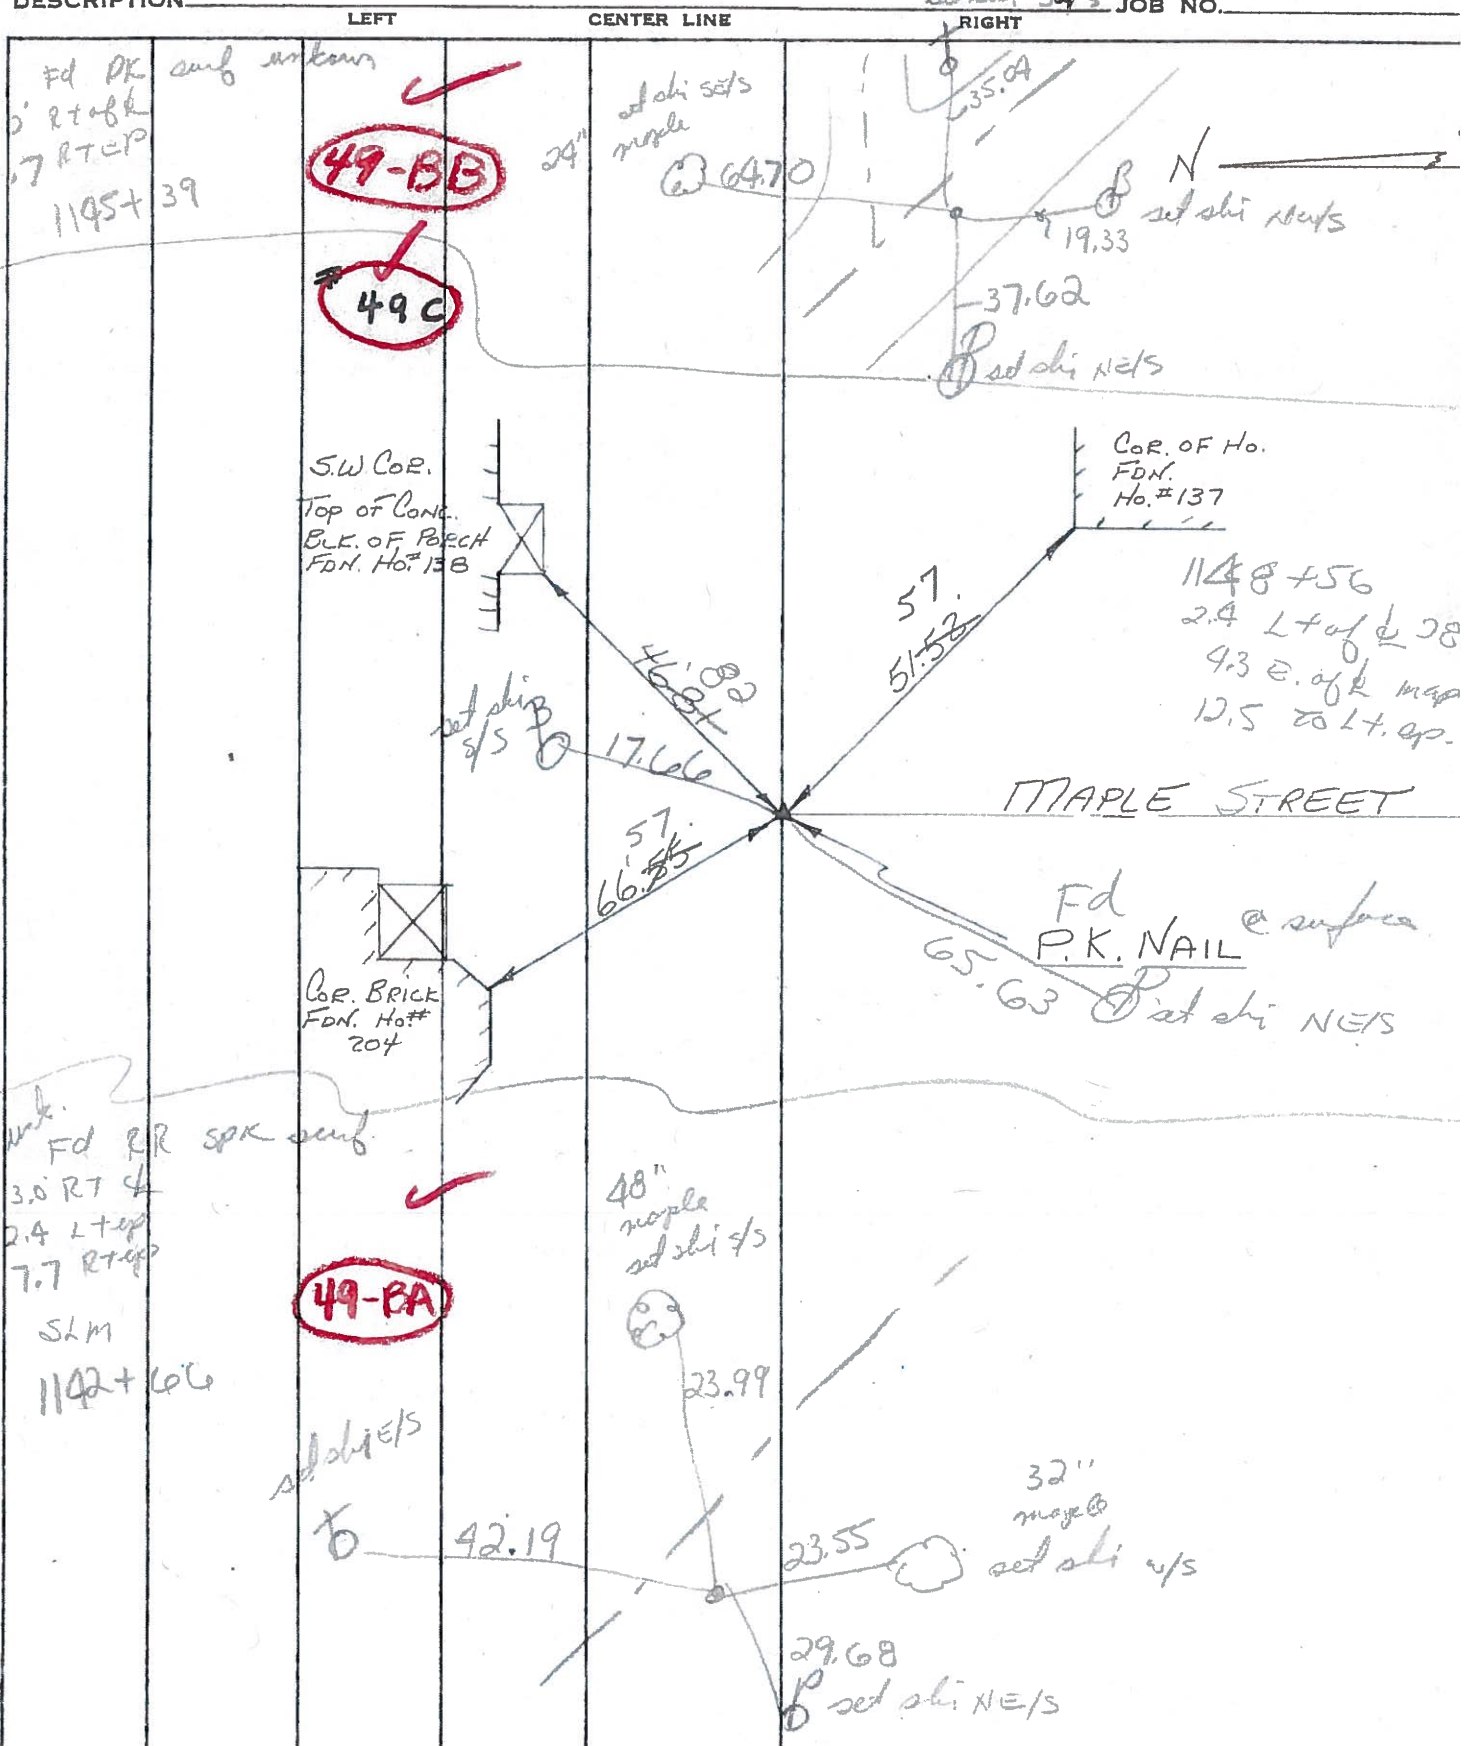 DESCRIPTION
JOB NO.
LEFT
CENTER LINE
RIGHT
Fd PK surf
Rt of ℄
.7 RT EP
1145+39
49-BB
49C
24"
maple
64.70
35.04
N
set shi NW/S
19.33
37.62
set shi NE/S
S.W. COR.
TOP OF CONC.
BLK. OF PORCH
FDN. HO.# 138
COR. OF HO.
FDN.
HO.#137
1148+56
2.4 Lt of ℄
4.3 E. of ℄ map
12.5 to Lt. ep.
57.
51.52
46.81
.82
set shi
S/S
17.66
MAPLE STREET
57.
66.55
Fd
P.K. NAIL @ surface
65.63
set shi NE/S
COR. BRICK
FDN. HO.#
204
Fd RR SPK surf
3.0 RT ℄
2.4 Lt ep
7.7 Rt ep
SLM
1142+66
49-BA
48"
maple
set shi S/S
23.99
set shi E/S
42.19
23.55
32"
maple
set shi W/S
29.68
set shi NE/S